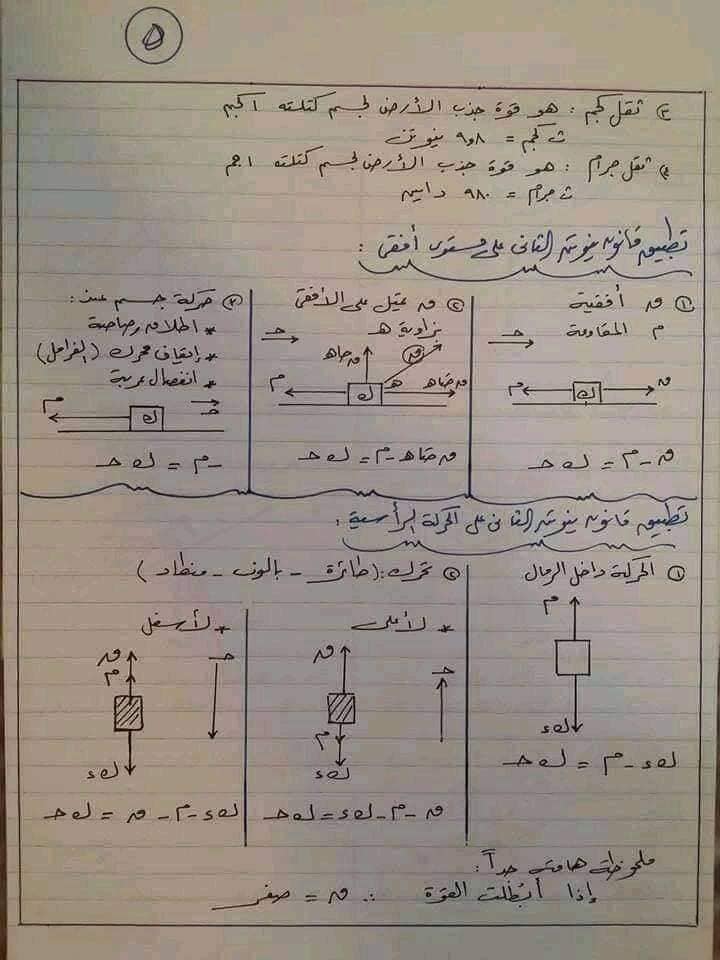 ٥
٣) ثقل كجم : هو قوة جذب الأرض لجسم كتلته ١ كجم
ث كجم = ٩٫٨ نيوتن
٤) ثقل جرام : هو قوة جذب الأرض لجسم كتلته ١ جم
ث جرام = ٩٨٠ داين
تطبيق قانون نيوتن الثانى على مستوى أفقى :
١) ق أفقية
م المقاومة
حـ
م ك ق
ق - م = ك حـ
٢) ق تميل على الأفقى
بزاوية هـ
حـ
ق حا هـ ق
م ك هـ ق حتا هـ
ق حتا هـ - م = ك حـ
٣) حركة جسم عند :
* اطلاق رصاصة
* إيقاف محرك (الفرامل)
* انفصال عربة
م ك حـ
- م = ك حـ
تطبيق قانون نيوتن الثانى على الحركة الرأسية :
١) الحركة داخل الرمال
م
ك ء
ك ء - م = ك حـ
٢) تحرك : (طائرة - بالون - منطاد)
* لأعلى
ق
حـ
م
ك ء
ق - م - ك ء = ك حـ
* لأسفل
ق
م
حـ
ك ء
ك ء - م - ق = ك حـ
ملحوظة هامة جداً :
إذا أبطلت القوة ∴ ق = صفر